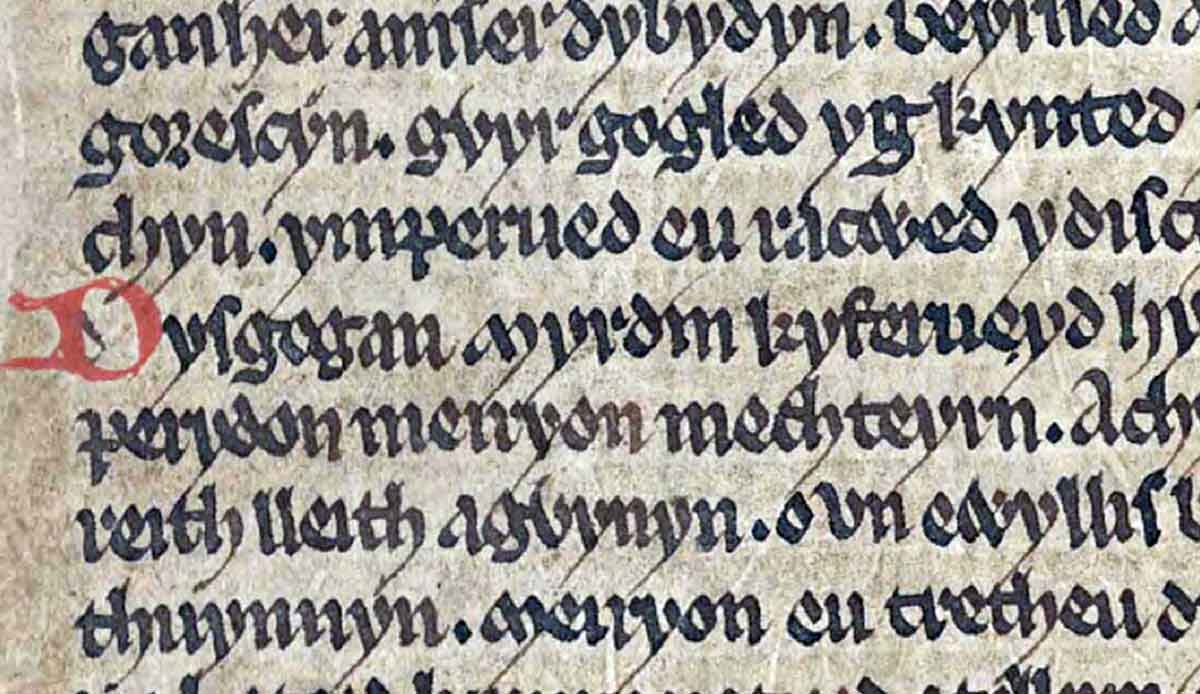 ganher amser dybydyn. teyrned a
gorescyn. gvyr gogled yg kynted
chyn. ymperued eu racwed y disc
Dysgogan myrdin kyferuẹyd hy
perydon meiryon mechteyrn. Ach
reith lleith agvynyn. o vn ewyllis b
thuynnyn. meiryon eu tretheu d